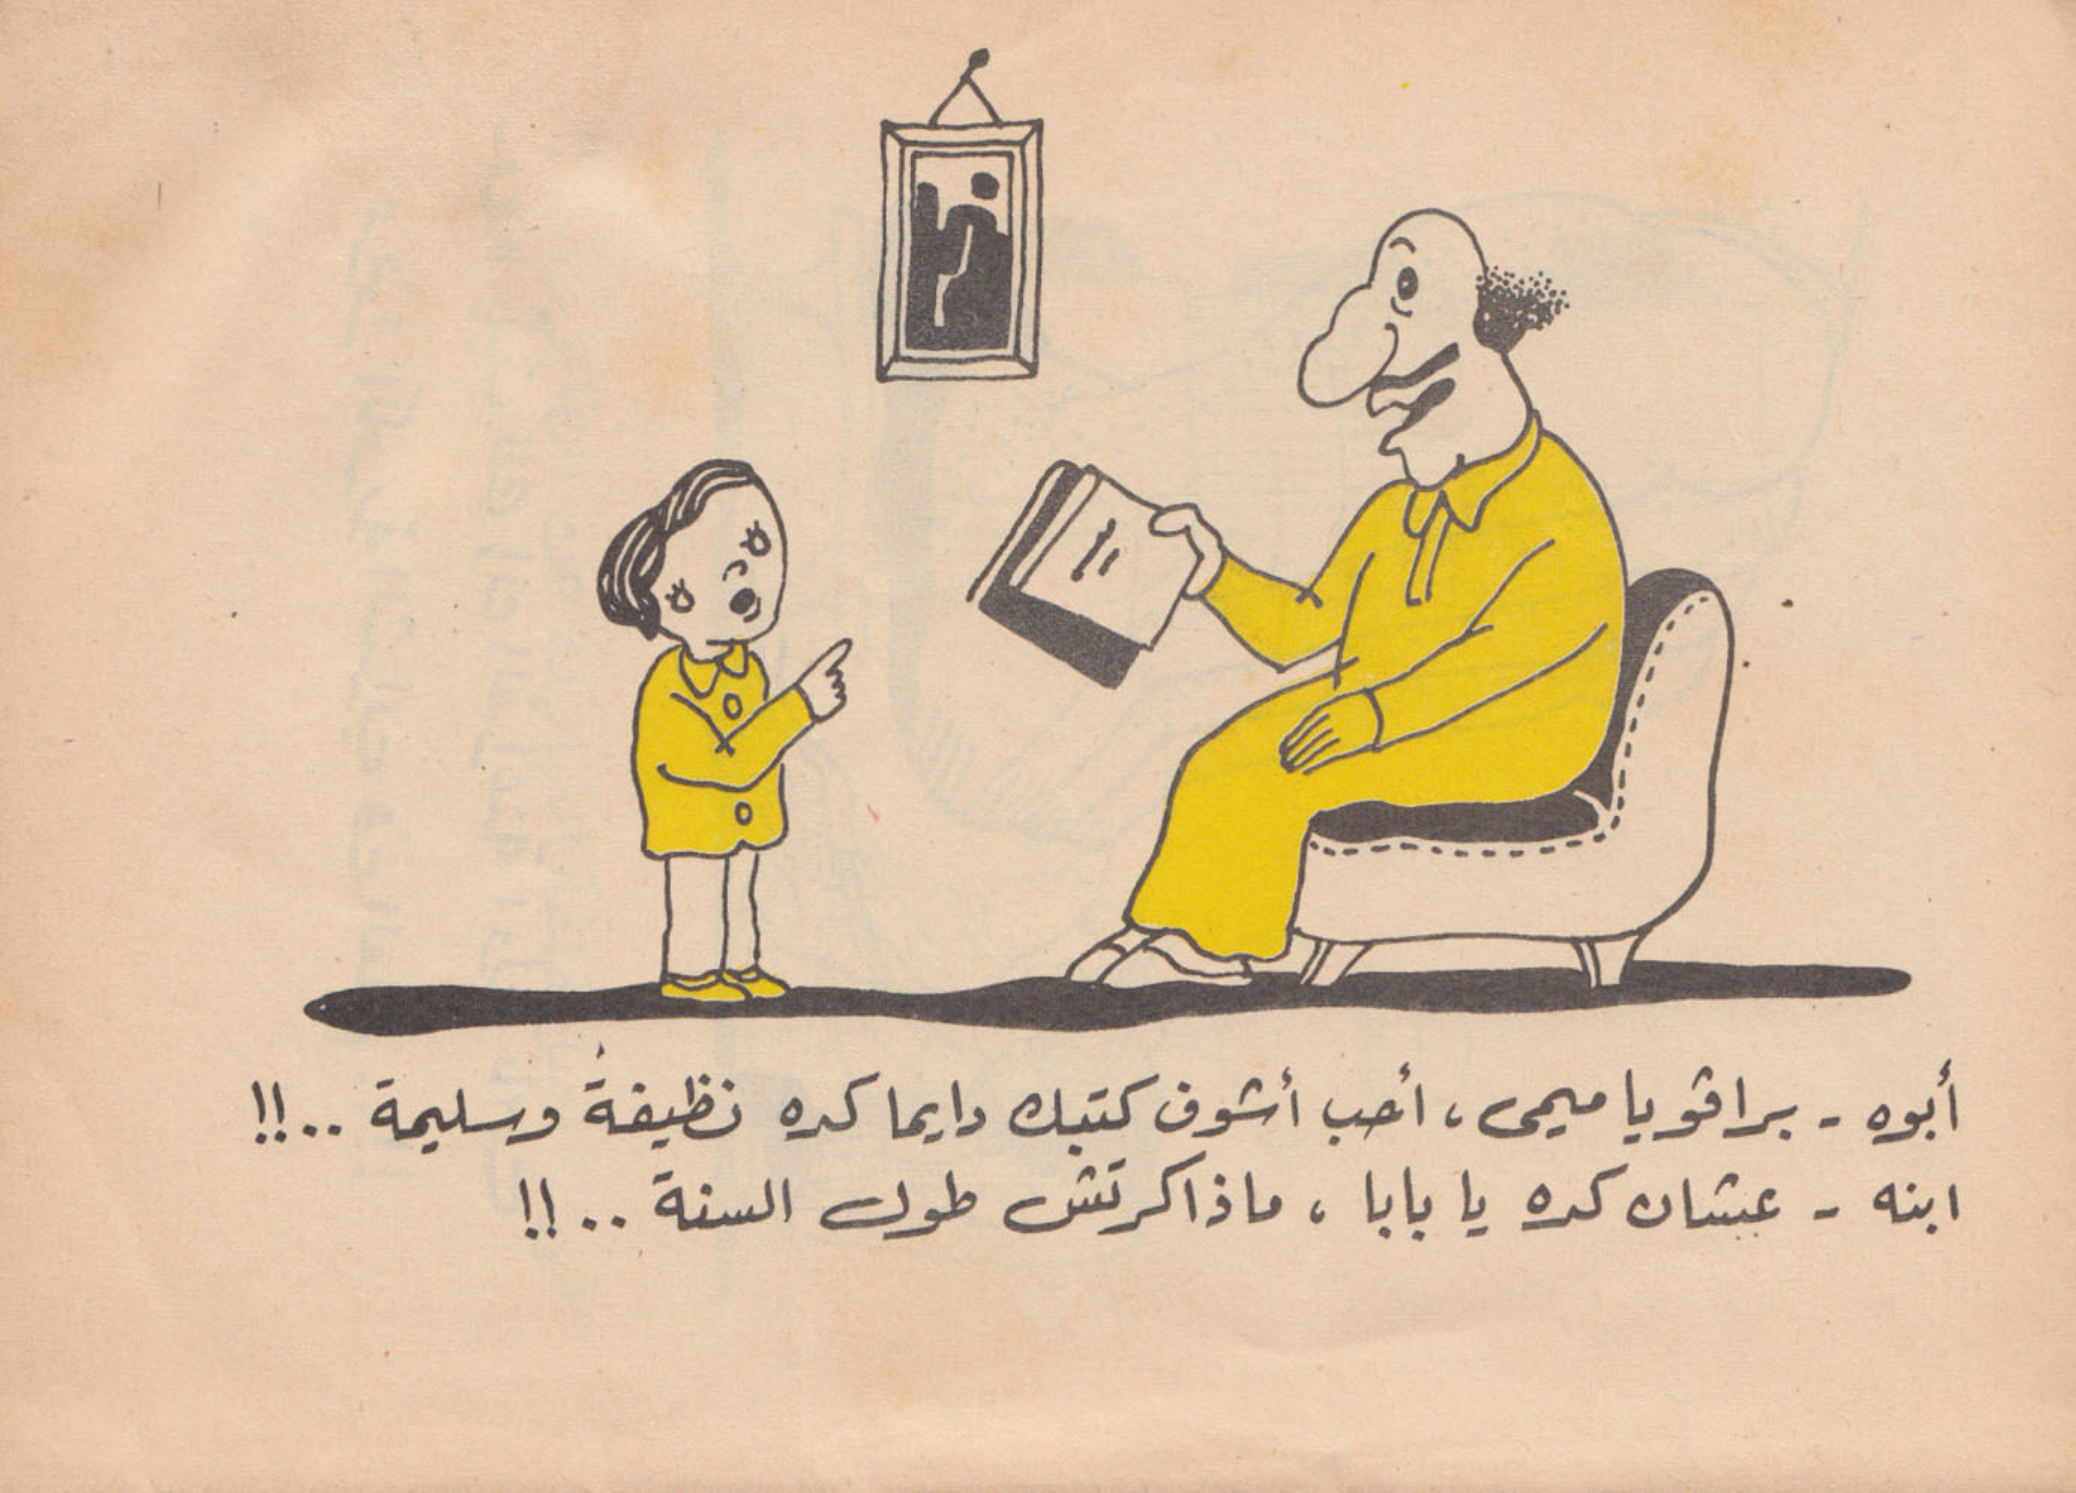 أبوه - براڤو يا ميمى ، أحب أشوف كتبك دايما كده نظيفة وسليمة ..!!
ابنه - عشان كده يا بابا ، ماذاكرتش طول السنة ..!!